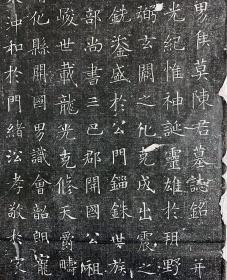 男侯莫陳君墓誌銘 并
光紀惟神誕靈雄於朔野
弼玄關之化克成出震之
銑鋈盛於公門錙銖世族
部尚書三巴郡開國公祖
峻世載龍光克脩天爵疇
化縣開國男識會韶朗寵
沖和於門緒沿孝敬於家